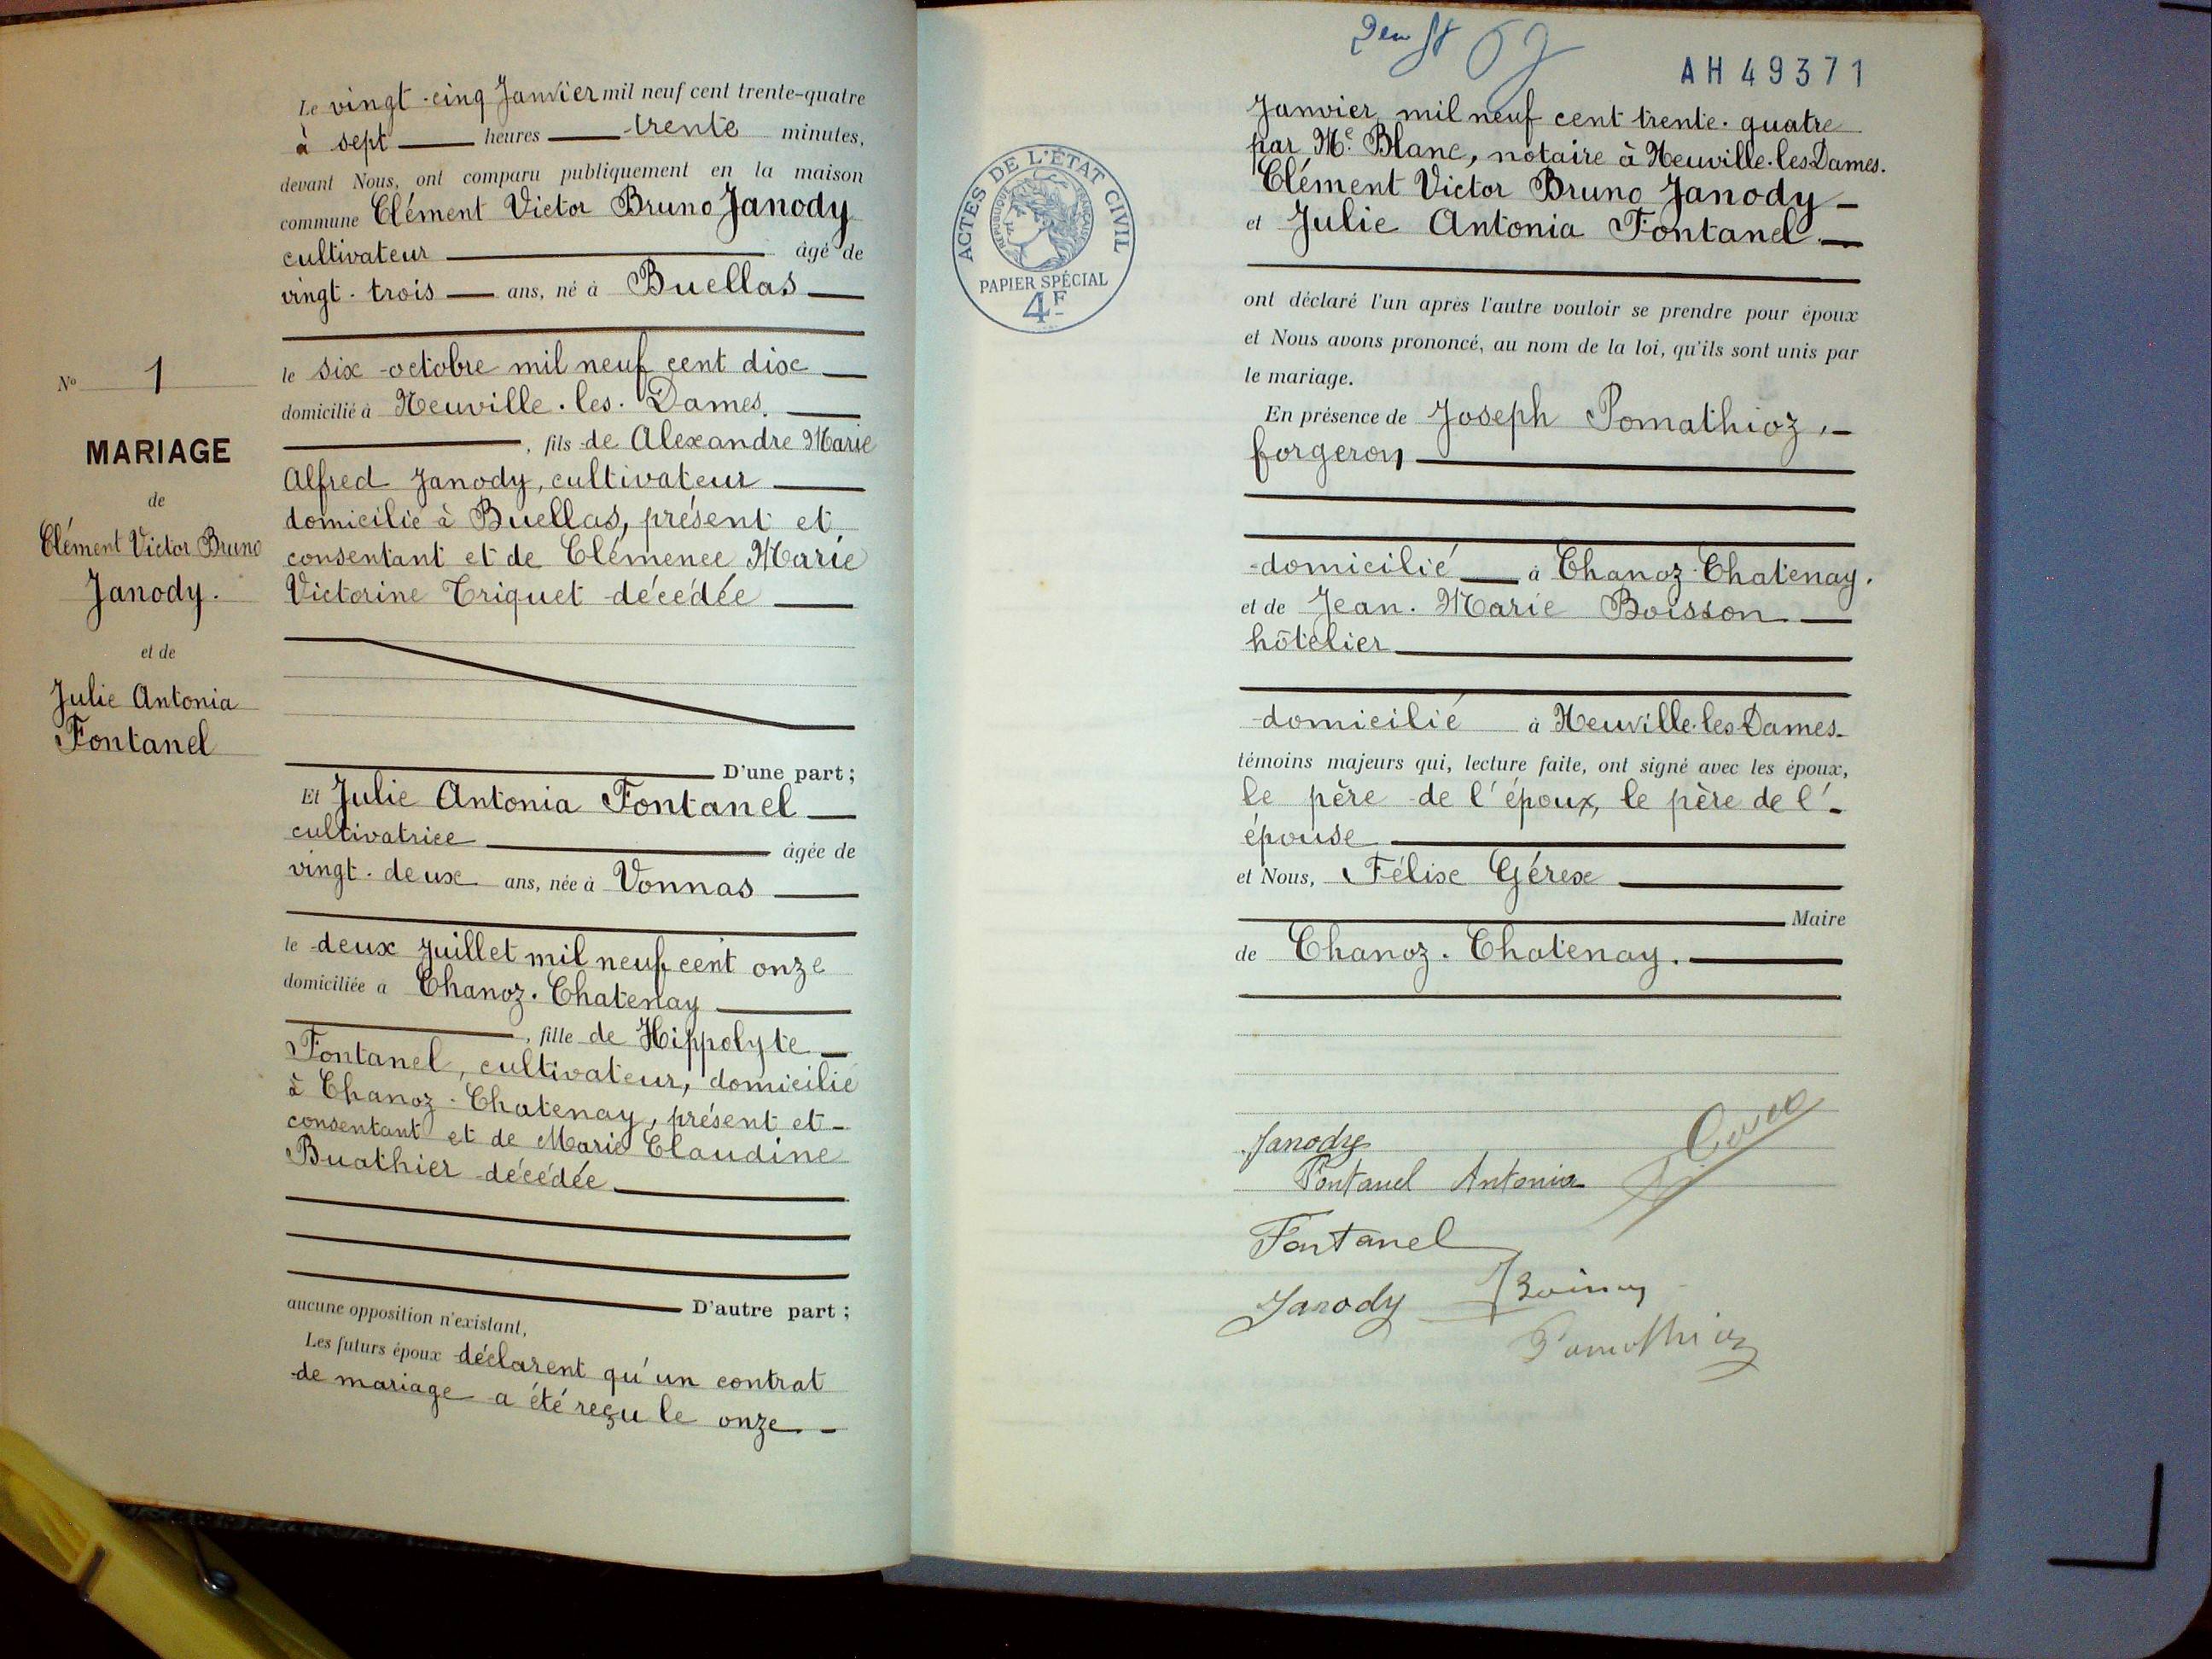 Le vingt-cinq Janvier mil neuf cent trente-quatre
à sept heures trente minutes,
devant Nous, ont comparu publiquement en la maison
commune Clément Victor Bruno Janody
cultivateur âgé de
vingt-trois ans, né à Buellas
le six octobre mil neuf cent dix
domicilié à Neuville-les-Dames.
, fils de Alexandre Marie
Alfred Janody, cultivateur
domicilié à Buellas, présent et
consentant et de Clémence Marie
Victorine Triquet décédée
D'une part ;
Et Julie Antonia Fontanel
cultivatrice âgée de
vingt-deux ans, née à Vonnas
le deux Juillet mil neuf cent onze
domiciliée à Chanoz-Chatenay
, fille de Hippolyte
Fontanel, cultivateur, domicilié
à Chanoz-Chatenay, présent et
consentant et de Marie Claudine
Buathier décédée
D'autre part ;
aucune opposition n'existant,
Les futurs époux déclarent qu'un contrat
de mariage a été reçu le onze
No 1
MARIAGE
de
Clément Victor Bruno
Janody.
et de
Julie Antonia
Fontanel
AH 49371
ACTES DE L'ÉTAT CIVIL
RÉPUBLIQUE FRANÇAISE
PAPIER SPÉCIAL
4F
Janvier mil neuf cent trente-quatre
par Me Blanc, notaire à Neuville-les-Dames.
Clément Victor Bruno Janody
et Julie Antonia Fontanel
ont déclaré l'un après l'autre vouloir se prendre pour époux
et Nous avons prononcé, au nom de la loi, qu'ils sont unis par
le mariage.
En présence de Joseph Pomathioz,
forgeron
domicilié à Chanoz-Chatenay.
et de Jean-Marie Boisson
hôtelier
domicilié à Neuville-les-Dames
témoins majeurs qui, lecture faite, ont signé avec les époux,
le père de l'époux, le père de l'
épouse
et Nous, Félix Gérex
Maire
de Chanoz-Chatenay.
Janody
Fontanel Antonia
Fontanel
Janody
Pomathioz